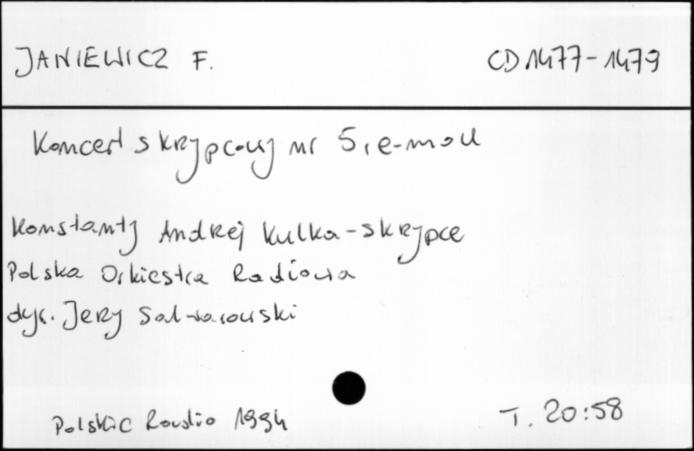 JANIEWICZ F. CD 1477-1479
Koncert skrzypcowy nr 5, e-moll
Konstanty Andrzej Kulka - skrzypce
Polska Orkiestra Radiowa
dyr. Jerzy Salwarowski
Polskie Radio 1994 T. 20:58